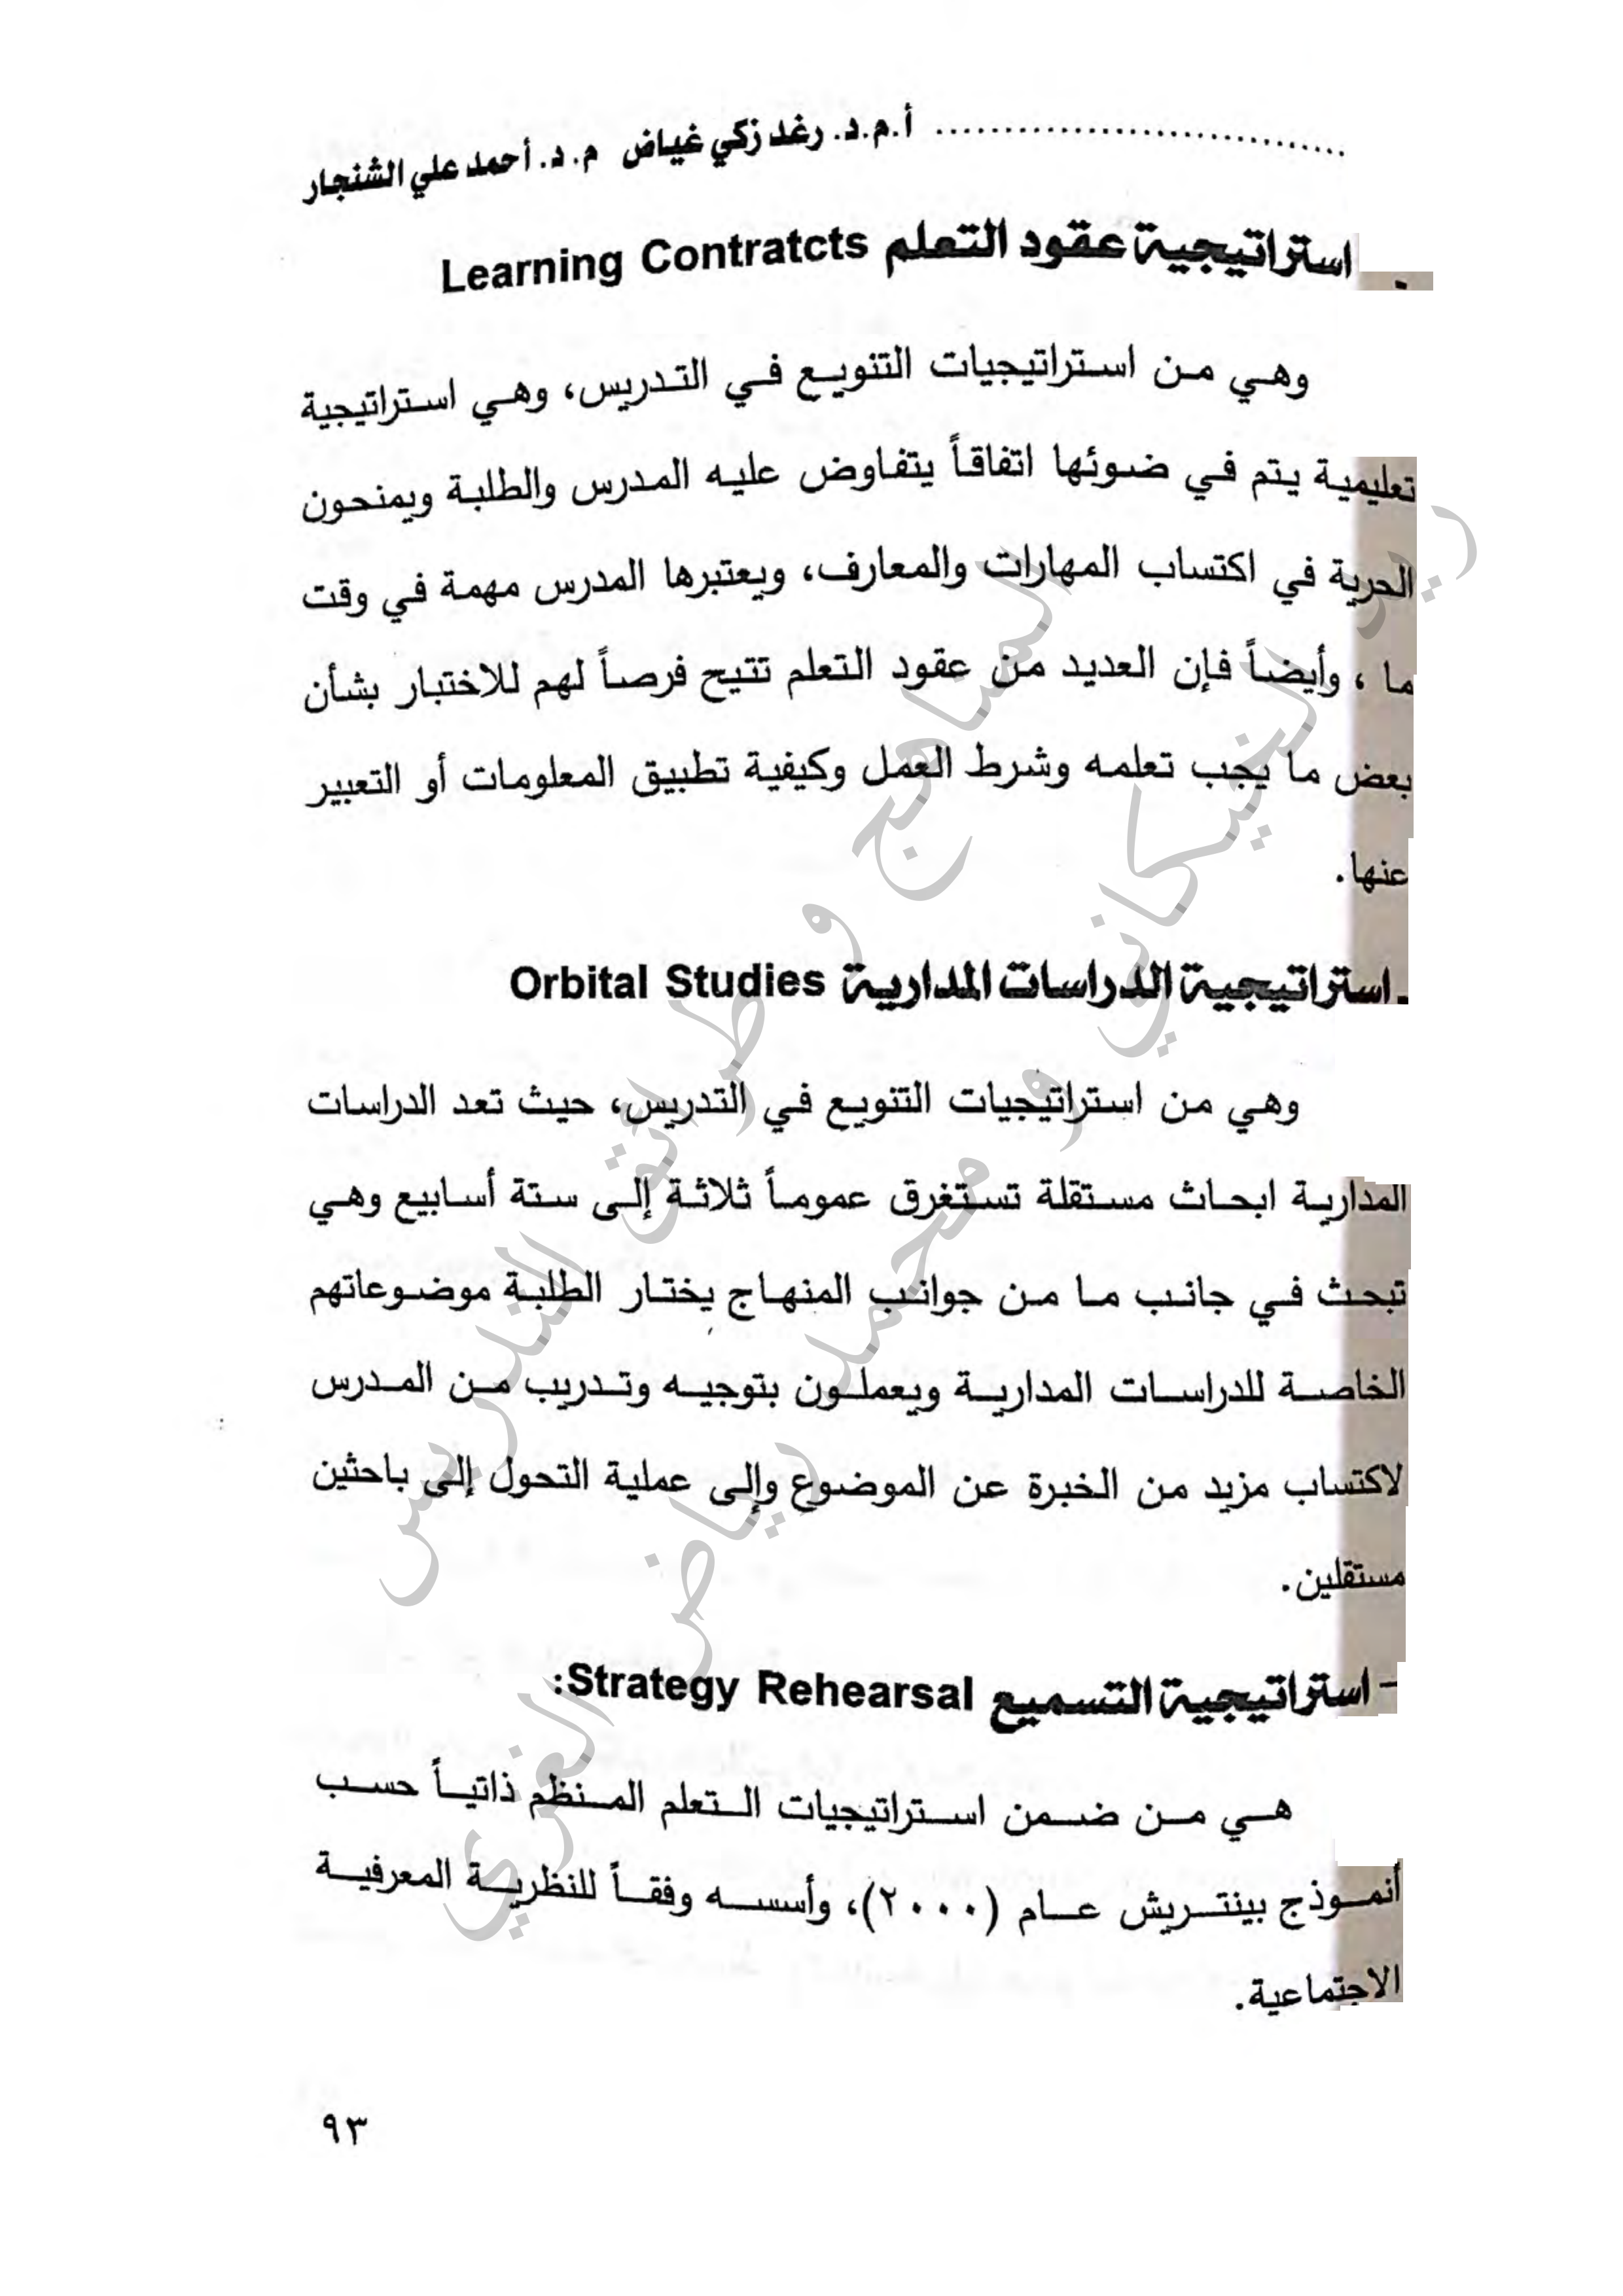 أ.م.د. رغد زكي غياض م.د. أحمد علي الشنجار
- استراتيجية عقود التعلم Learning Contratcts
وهي من استراتيجيات التنويع في التدريس، وهي استراتيجية
تعليمية يتم في ضوئها اتفاقاً يتفاوض عليه المدرس والطلبة ويمنحون
الحرية في اكتساب المهارات والمعارف، ويعتبرها المدرس مهمة في وقت
ما ، وأيضاً فإن العديد من عقود التعلم تتيح فرصاً لهم للاختبار بشأن
بعض ما يجب تعلمه وشرط العمل وكيفية تطبيق المعلومات أو التعبير
عنها.
- استراتيجية الدراسات المدارية Orbital Studies
وهي من استراتيجيات التنويع في التدريس، حيث تعد الدراسات
المدارية ابحاث مستقلة تستغرق عموماً ثلاثة إلى ستة أسابيع وهي
تبحث في جانب ما من جوانب المنهاج يختار الطلبة موضوعاتهم
الخاصة للدراسات المدارية ويعملون بتوجيه وتدريب من المدرس
لاكتساب مزيد من الخبرة عن الموضوع وإلى عملية التحول إلى باحثين
مستقلين.
- استراتيجية التسميع Strategy Rehearsal:
هي من ضمن استراتيجيات التعلم المنظم ذاتياً حسب
أنموذج بينتريش عام (٢٠٠٠)، وأسسه وفقاً للنظرية المعرفية
الاجتماعية.
٩٣
المناهج و طرائق التدريس
الخيكاني و محمد رياض الغزي